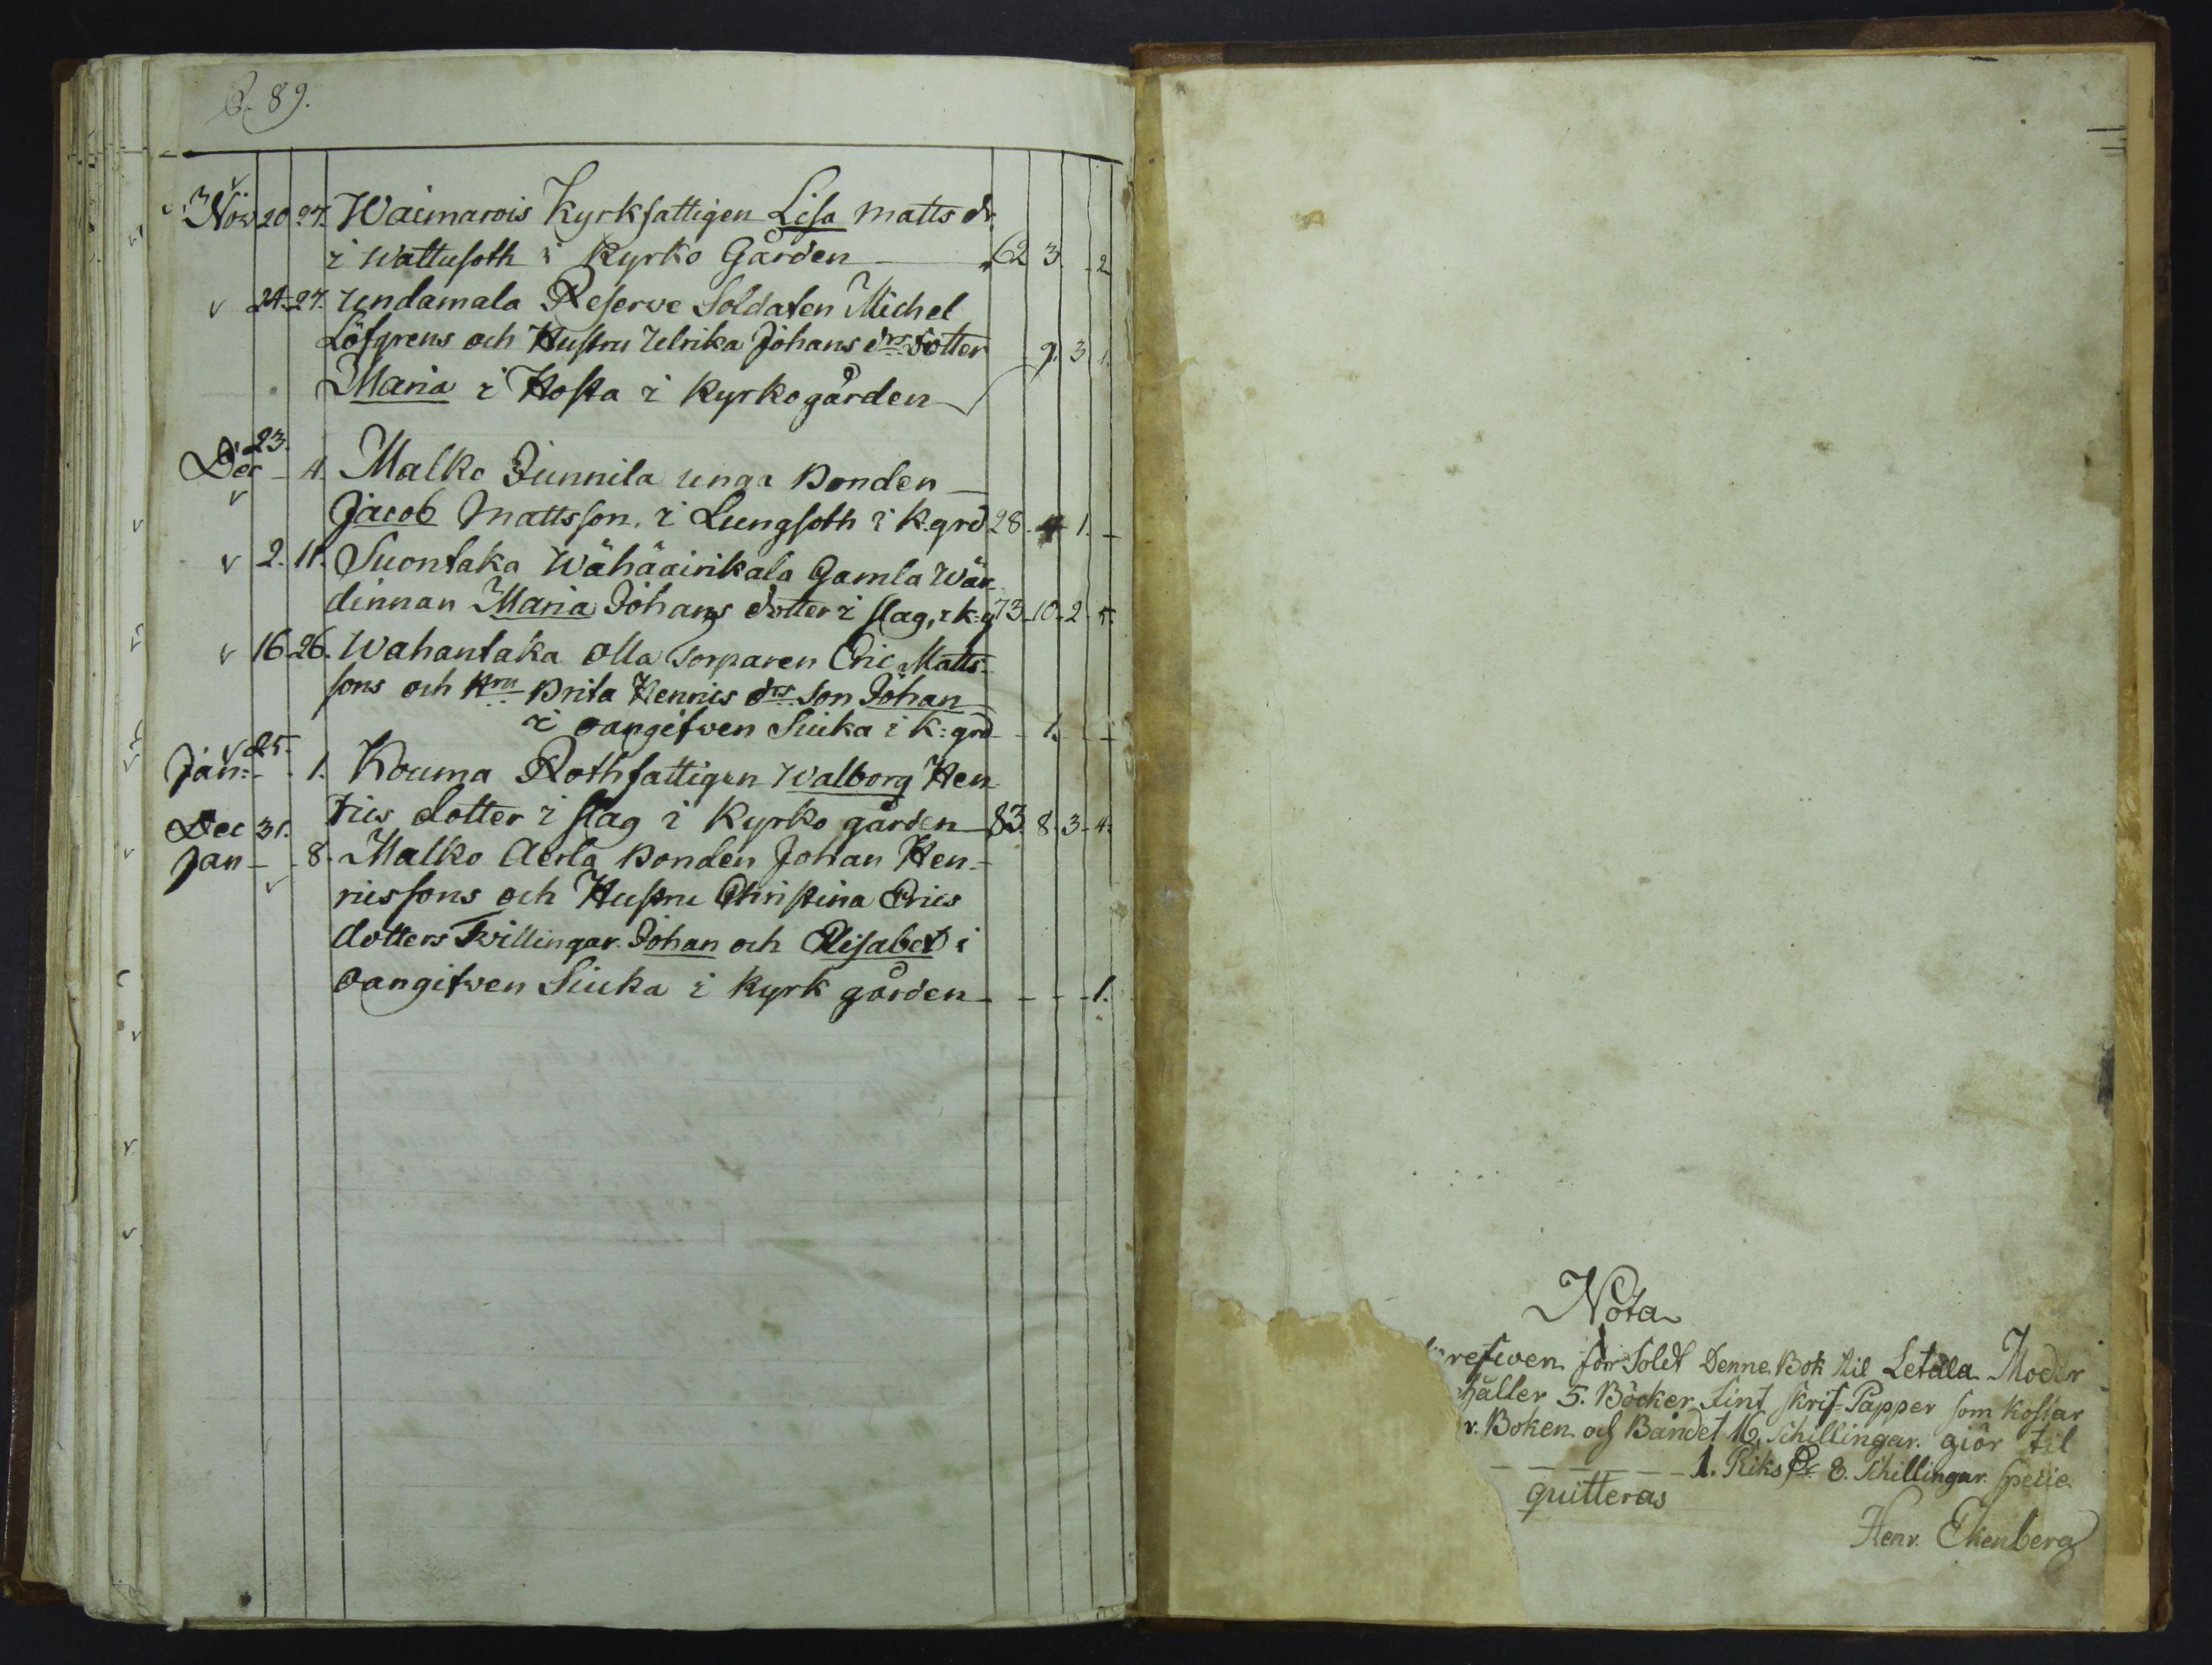 89.
Nov 20 27. Waimarois Kyrkfattigen Lisa Matts dr
i Wattusoth i Kyrko Gården 62 3. - 2
v 24-27. Undamala Reserve Soldaten Michel
Löfgrens och Hustru Ulrika Johans drs dotter - 9. 3 1.
Maria i Hosta i Kyrkogården
23.
Dec - 4. Malko Junnila unga Bonden
v Jacob Mattsson. i Lungsoth i K.grd 28 - 4 1. -
v 2. 11. Suontaka Wähäairikala Gamla Wär
dinnan Maria Johans dotter i slag, i k:g 73 - 10 - 2 - 5.
v 16 26. Wahantaka Olla Torparen Eric Matts-
sons och Hru Brita Henrics drs Son Johan
i oangifwen Siuka i K:grd - 1. - -
v 25.
Jan: - 1. Kouma Rothfattigen Walborg Hen
Dec 31. rics dotter i slag i Kyrko gården 83. 8. 3 - 4.
Jan - - 8. Malko Aerla Bonden Johan Hen-
v ricssons och Hustru Christina Erics
dotters Twillingar. Johan och Elisabet i
Oangifwen Siuka i Kyrk gården - - - - 1.
Nota
refwen för Soldt Denne Bok til Letala Moder
håller 5. Böcker fint Skrif-Papper som kostar
r. Boken och Bandet 16, Schillingar. giör til
1. Riks Dr 8. Schillingar. Specie
quitteras
Henr. Ekenberg